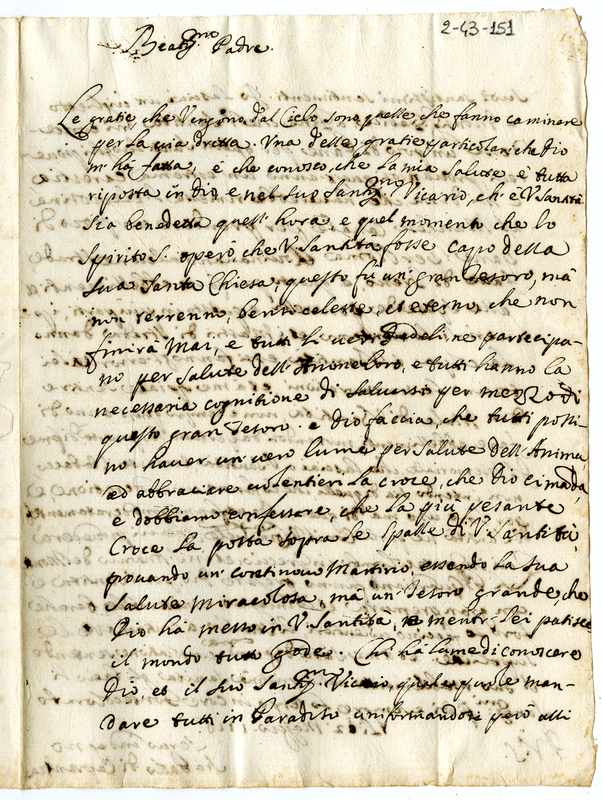 2-43-151
Beat.mo Padre.
Le gratie, che vengono dal Cielo sono quelle che fanno caminare
per la via dritta. Una delle gratie particolari che Dio
m'hà fatta, è che conosco, che la mia salute è tutta
riposta in Dio, e nel suo Sant.mo Vicario, ch'è V. Santità
sia benedetta quell'hora, e quel momento che lo
Spirito S. operò, che V. Santità fosse capo della
sua Santa Chiesa, questo fù un gran Tesoro, mà
non terreno, bensi celeste, et eterno, che non
finirà mai, e tutti li veri fedeli ne partecipa-
no per salute dell'Anime loro, e tutti hanno la
necessaria cognitione di salvarsi per mezzo di
questo gran Tesoro. e Dio faccia, che tutti possi-
no haver un vero lume per salute dell'Anima
ed abbraciare volentieri la croce, che Dio ci manda,
e dobbiamo confessare, che la più pesante
Croce la posta sopra le spalle di V. Santità,
provando un continovo Martirio, essendo la sua
salute miracolosa, mà un Tesoro grande, che
Dio hà messo in V. Santità, mentre lei patisce
il mondo tutto gode. Chi hà lume di conoscere
Dio, et il suo Sant.mo Vicario, quale puole man-
dare tutti in Paradiso uniformandosi però alli